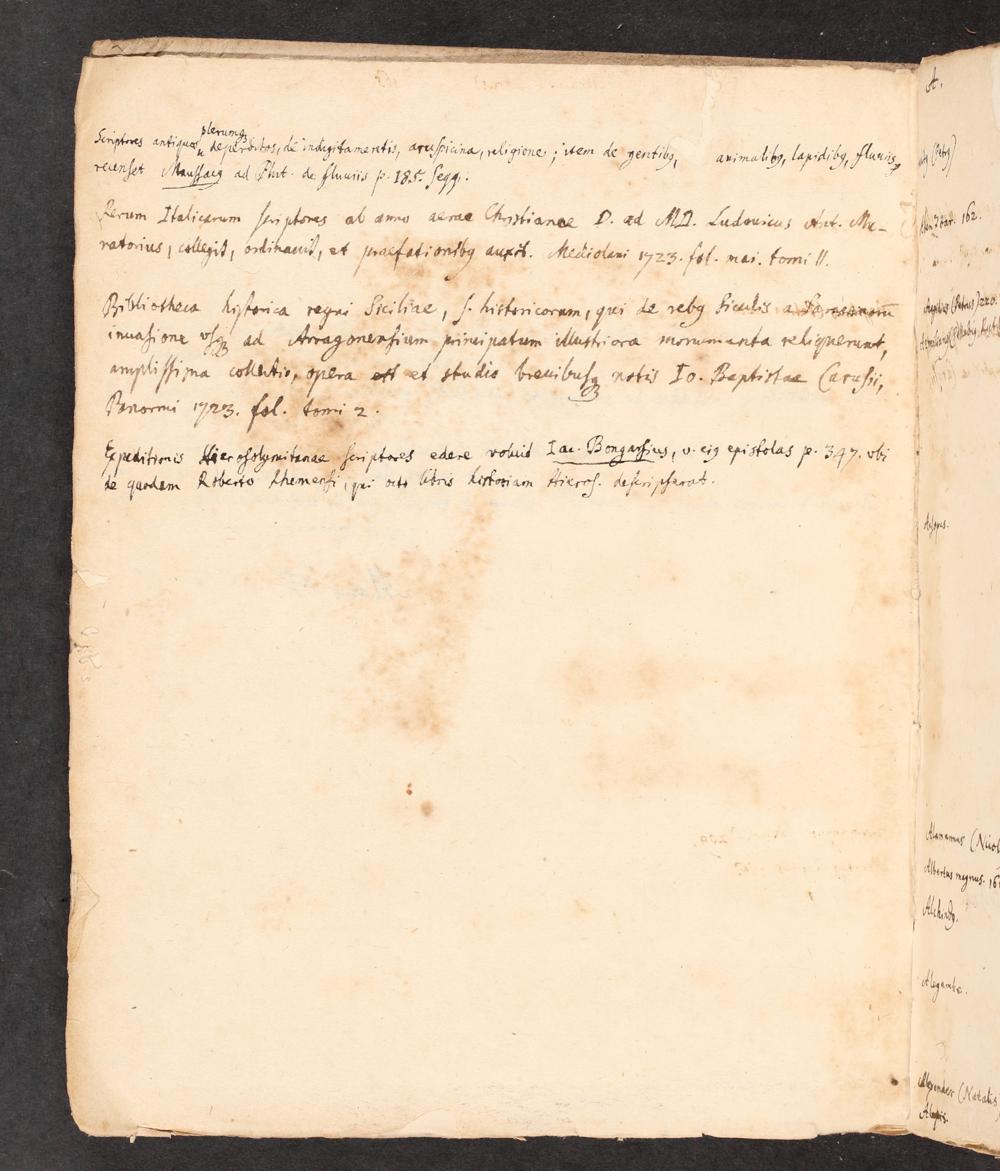 plerumq;
Scriptores antiquos deperditos, de indigitamentis, aruspicina, religione; item de gentibq, animalibq, lapidibq, fluviis,
recenset Maussacq ad Plut. de fluuiis p. 185. seqq.
Rerum Italicarum scriptores ab anno aerae Christianae D. ad MD. Ludouicus Ant. Mu-
ratorius, collegit, ordinauit, et praefationibq auxit. Mediolani 1723. fol. mai. tomi II.
Bibliotheca historica regni Siciliae, s. historicorum, qui de rebq Siculis a Saracenorū
inuasione vsq; ad Arragonensium principatum illustriora monumenta reliquerunt,
amplissima collectio, opera et studio breuibusq; notis Io. Baptistae Carusii,
Panormi 1723. fol. tomi 2.
Expeditionis Hierosolymitanae scriptores edere voluit Iac. Bongarsius, v. eiq epistolas p. 347. vbi
de quodam Roberto Rhemensi, qui octo libris historiam Hieros. descripserat.
A.
162.
(Petrus) 220.
Aesopus.
Alamannus (Nicol
Albertus magnus. 16
Alchindq.
Alegambe.
Alexander (Natalis)